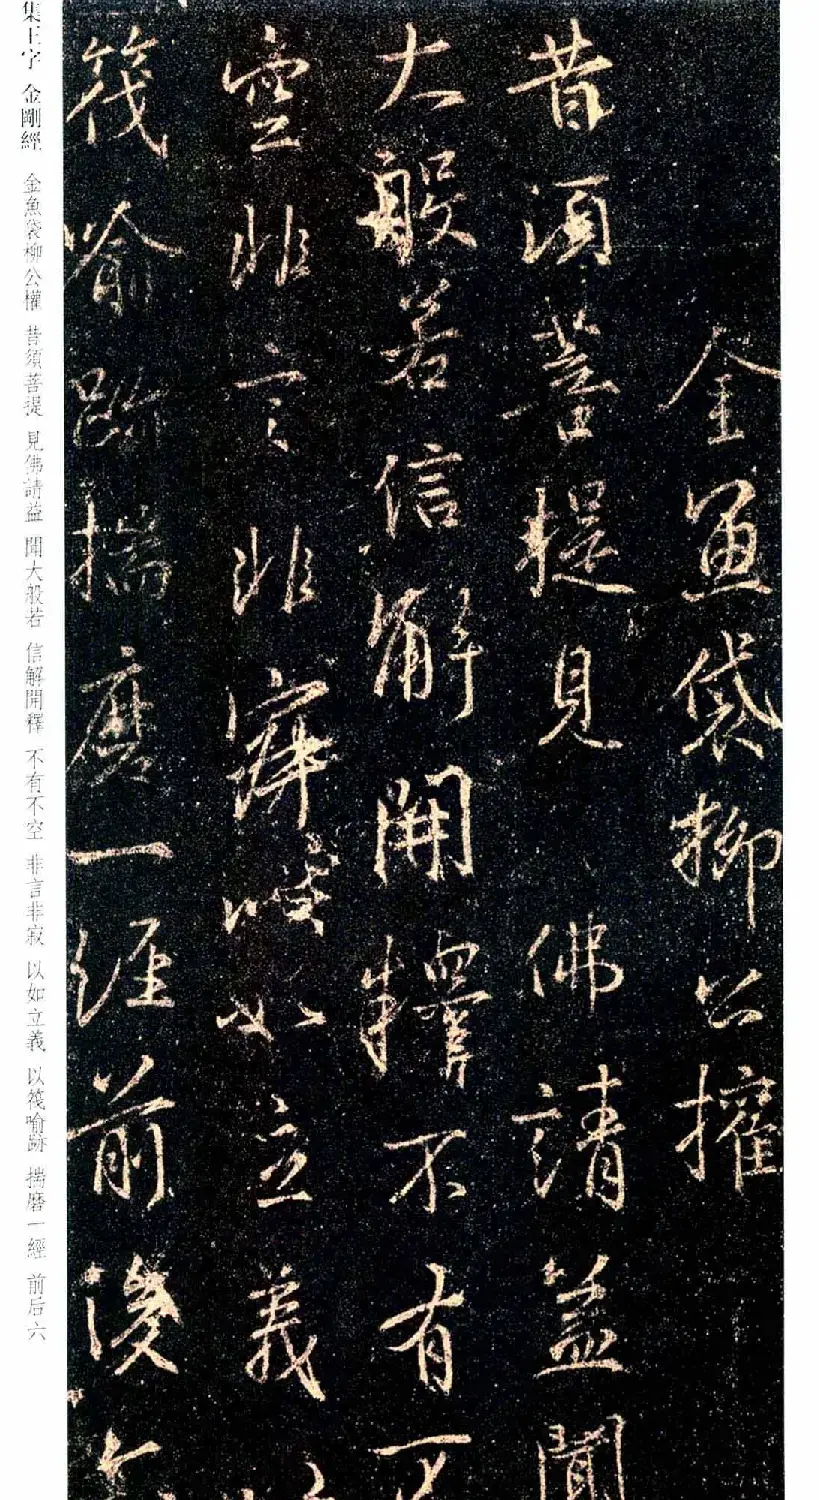 金魚袋柳公權
昔須菩提見 佛請益聞
大般若信解開釋不有不
空非言非寂如立義以
筏喻跡揣磨一經前後六
集王字 金剛經 金魚袋柳公權 昔須菩提 見佛請益 聞大般若 信解開釋 不有不空 非言非寂 以如立義 以筏喻跡 揣磨一經 前后六